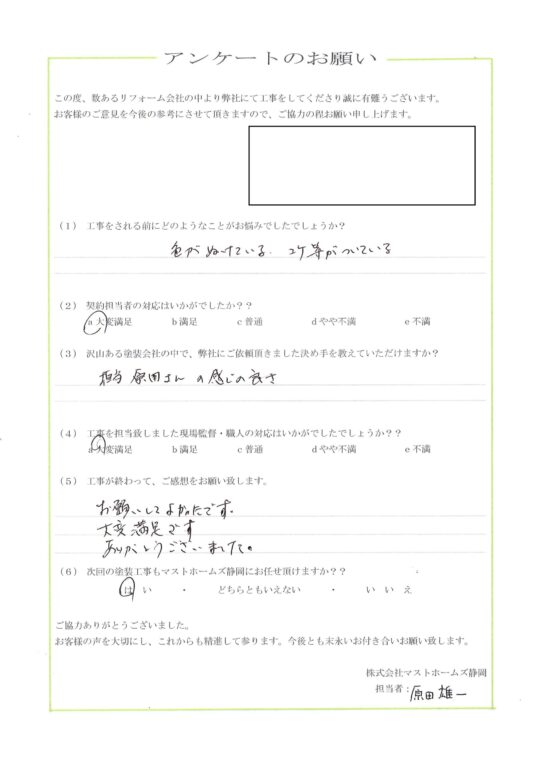 アンケートのお願い
この度、数あるリフォーム会社の中より弊社にて工事をしてくださり誠に有難うございます。
お客様のご意見を今後の参考にさせて頂きますので、ご協力の程お願い申し上げます。
(1) 工事をされる前にどのようなことがお悩みでしたでしょうか?
色がぬけている. コケ等がついている
(2) 契約担当者の対応はいかがでしたか??
a 大変満足 b 満足 c 普通 d やや不満 e 不満
(3) 沢山ある塗装会社の中で、弊社にご依頼頂きました決め手を教えていただけますか?
担当 原田さん の感じの良さ
(4) 工事を担当致しました現場監督・職人の対応はいかがでしたでしょうか??
a 大変満足 b 満足 c 普通 d やや不満 e 不満
(5) 工事が終わって、ご感想をお願い致します。
お願いしてよかったです。
大変満足です
ありがとうございました。
(6) 次回の塗装工事もマストホームズ静岡にお任せ頂けますか??
はい ・ どちらともいえない ・ いいえ
ご協力ありがとうございました。
お客様の声を大切にし、これからも精進して参ります。今後とも末永いお付き合いお願い致します。
株式会社マストホームズ静岡
担当者: 原田 雄一